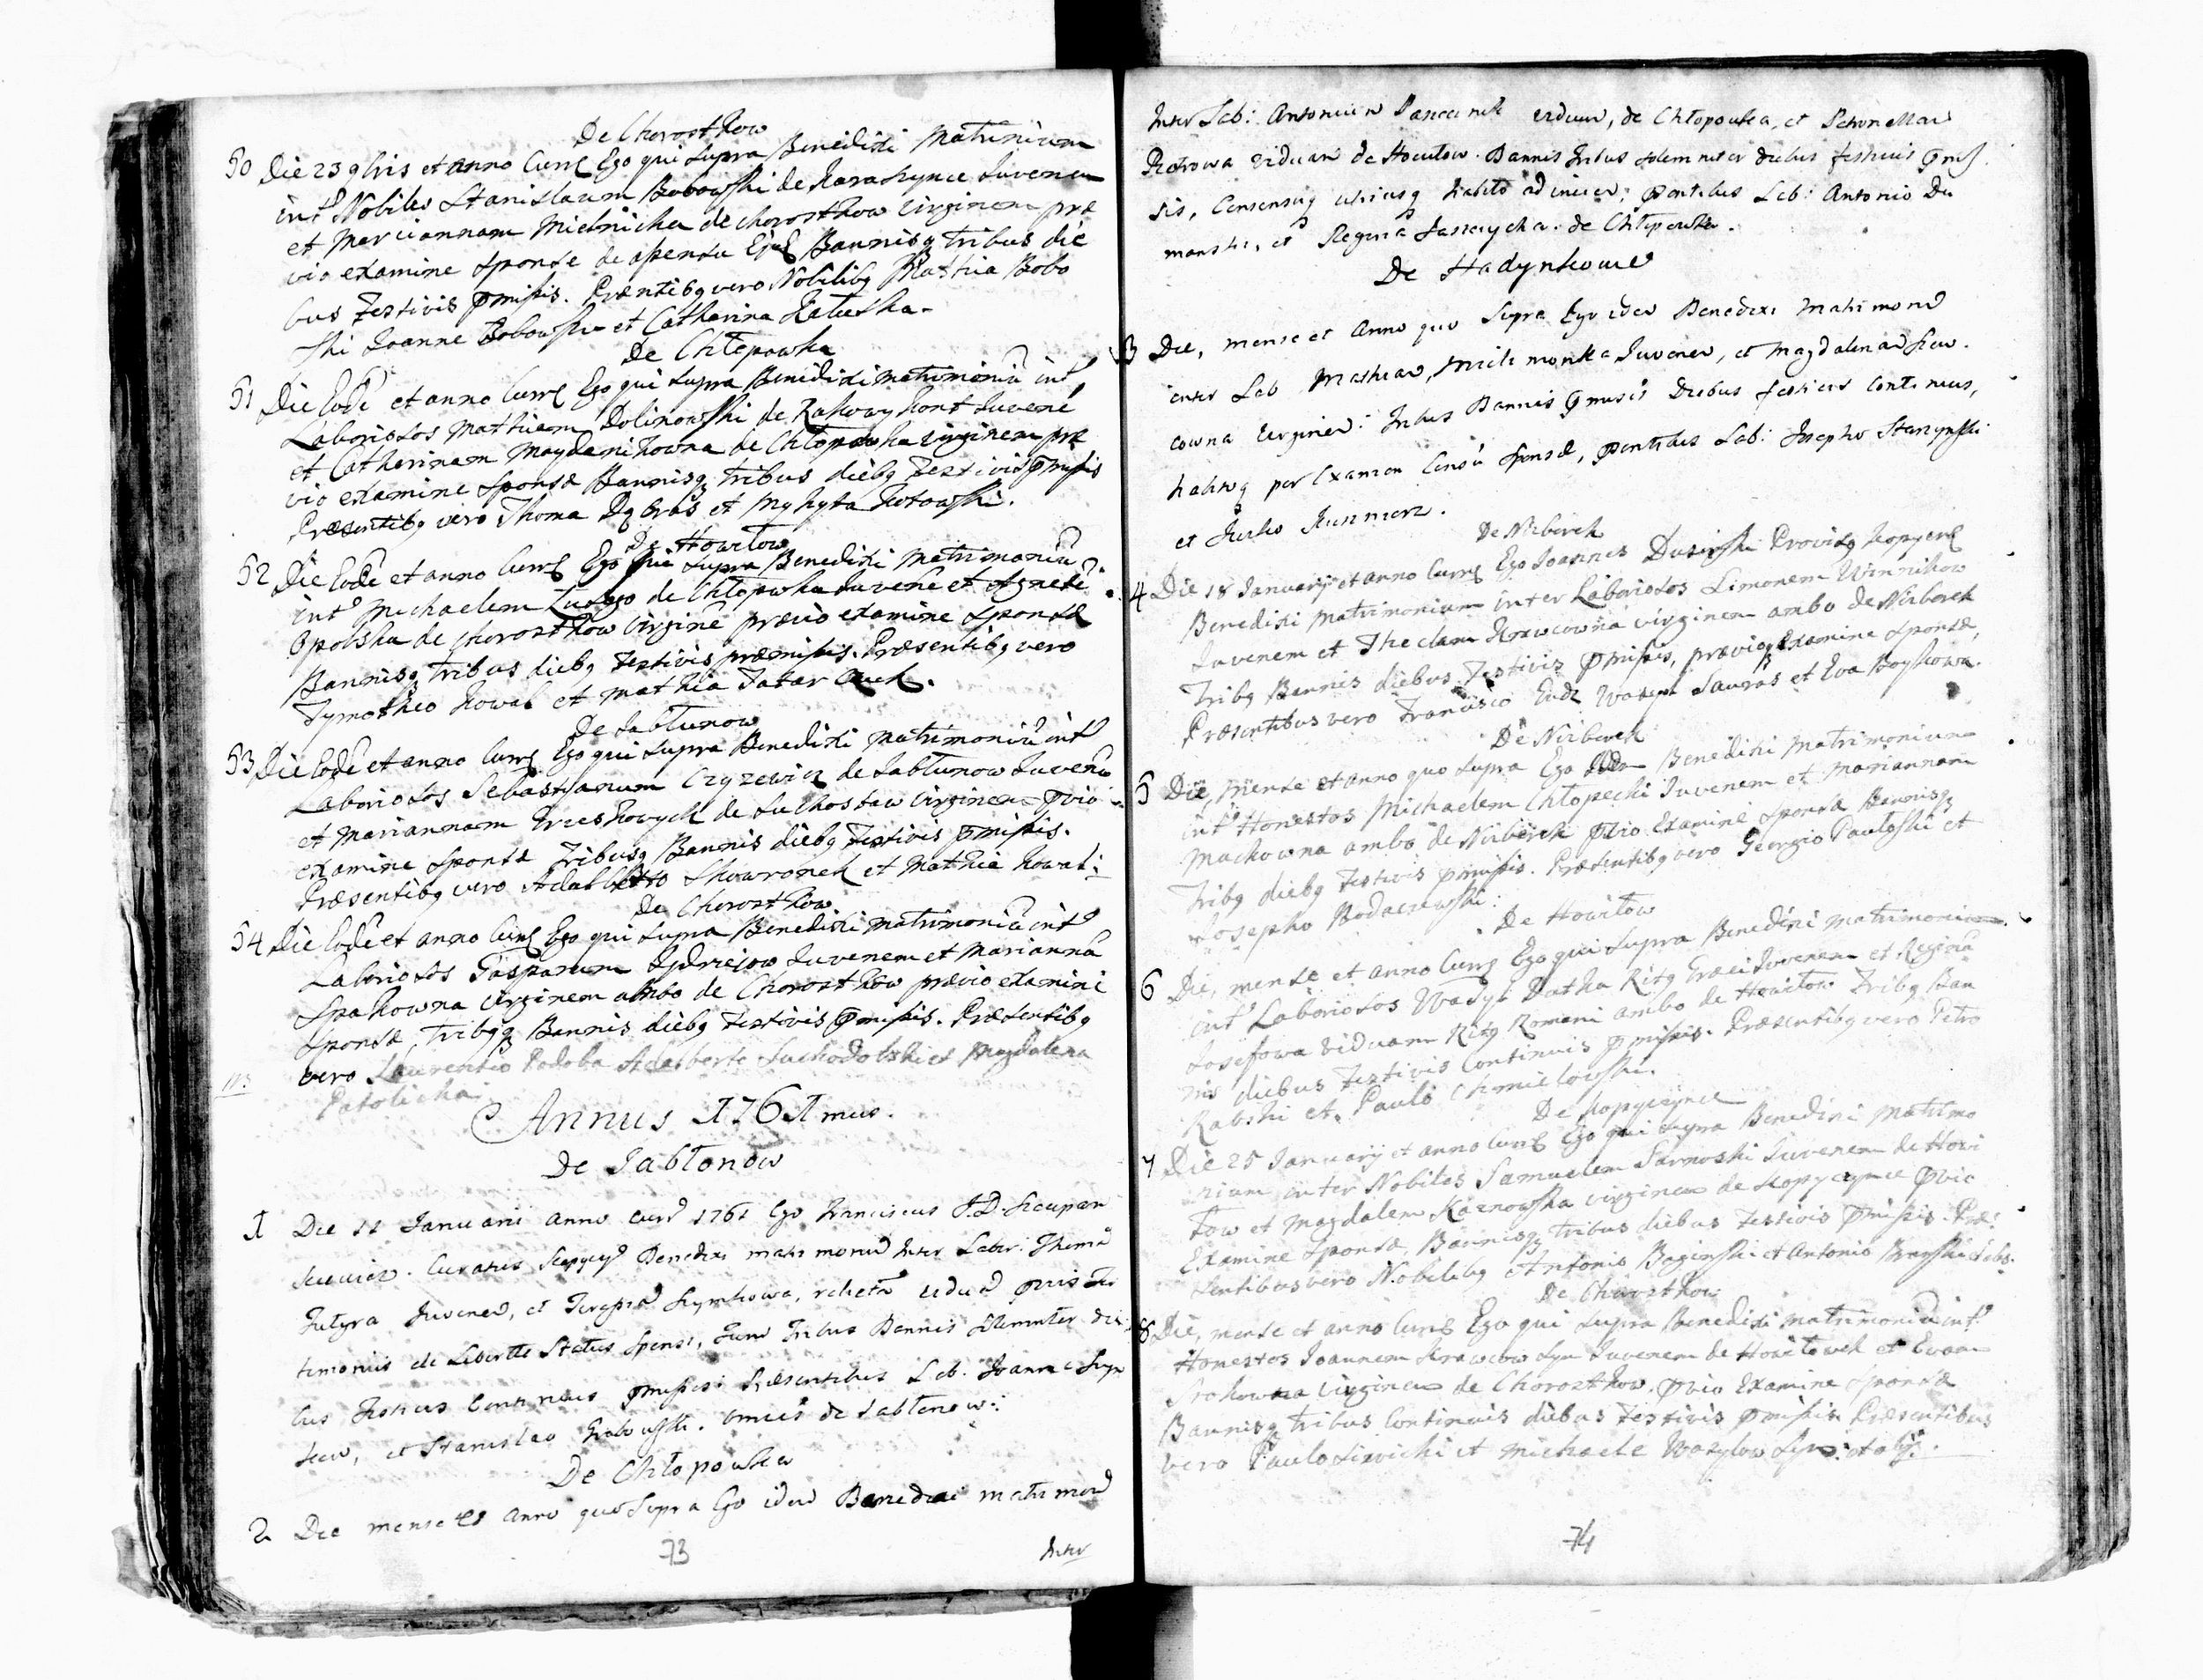 De Chorostkow
50 Die 23 9bris et anno Curr Ego qui supra Benedixi Matrimium
int Nobiles Stanislaum Bobowski de Karaszynce Juvenem
et Mariannam Mielnicka de Chorostkow Virginem præ
vio examine Sponsæ de assensu Bannisq tribus die
bus Festivis pmissis. Præntibq vero Nobilibq Mathia Bobo
ski Joanne Bobowski et Catharina
De Chłopowka
51 Die Eode et anno Curr Ego qui supra Benedixi Matrimoniu int
Laboriosos Mathiam Dolinowski de Rakowykont Juvene
et Catharinam Magdenikowna de Chłopowka Virginem præ
vio examine Sponsæ Bannisq tribus diebq Festivis pmissis
Præsentibq vero Thoma et Mykyta Kutowski.
De Howilow
52 Die Eode et anno Curr Ego qui supra Benedixi Matrimoniu
int Michaelem de Chłopowka Juvene et Agnete
Opolska de Chorostkow Virgine prævio examine Sponsæ
Bannisq tribus diebq Festivis præmissis. Præsentibq vero
Tymotheo Kowal et Mathia Tatar
De Jabłunow
53 Die Eode et anno Curr Ego qui supra Benedixi Matrimoniu int
Laboriosos Sebastianum Czyzewicz de Jabłunow Juvene
et Mariannam de Suchostaw Virginem pvio
examine Sponsæ Tribusq Bannis diebq Festivis pmissis.
Præsentibq vero Adalberto Skowronek et Mathia Kowal:
De Chorostkow
54 Die Eode et anno Curr Ego qui supra Benedixi Matrimoniu int
Laboriosos Gasparum Juvenem et Marianna
Spakowna Virginem ambo de Chorostkow prævio examine
Sponsæ, Tribqq Bannis diebq Festivis pmissis. Præsentibq
vero Laurentio Podoba Adalberto Suchodolski et Magdalena
Patolicka
Annus 1761mus.
De Jabłonow
1 Die 11 Januarii Anno curr 1761 Ego Franciscus
Curatus Benedixi matrimoniu Inter Labor: Thoma
Juvene, et Szymkowa, relicta vidua
timoniis de Libertte Status Sponsi, Tribus Bannis Solemniter die
bus Festivis Continuis pmissis: Præsentibus Lab. Joanne
et Stanislao Grabowski. omnes de Jabłonow:
De Chłopowka
2 Die mense et anno quo Supra Ego idem Benedixi matrimon
73
Inter
Inter Lab: Antonium viduum, de Chłopowka, et
Piotrowa viduam de Howilow. Bannis Tribus solemniter diebus festivis pmis
sis, Consensuq utriusq habito ad invicem; pntibus Lab: Antonio Du
manski, et Regina de Chłopowka.
De Hadynkowce
3 Die, mense et Anno quo Supra Ego idem Benedixi Matrimoniu
inter Lab Mathiam, Juvenem, et Magdalenam
cowna Virginem: Tribus Bannis pmissis Diebus festivis Continuis,
habitoq per Examen Consensu Sponsæ, pntibus Lab: Josepho Starzynski
et
De Nizborek
4 Die 18 January et anno Curr Ego Joannes Provisq
Benedixi Matrimonium inter Laboriosos Simonem Winnikow
Juvenem et Theclam Krawcowna Virginem ambo de Nizborek
Tribq Bannis diebus Festivis pmissis, prævioq Examine Sponsæ,
Præsentibus vero Francisco et Eva Boykowa.
De Nizborek
5 Die, mense et anno quo supra Ego Idem Benedixi Matrimonium
int Honestos Michaelem Chłopecki Juvenem et Mariannam
Mackowna ambo de Nizborek pvio Examine Sponsæ Bannisq
Tribq diebq Festivis pmissis. Præsentibq vero Georgio Pauloski et
Josepho Bodaczewski:
De Howilow
6 Die, mense et anno Curr Ego qui supra Benedixi Matrimonium.
int Laboriosos Wasyl Datka Ritq Græci Juvenem et Regina
Josefowa viduam Ritq Romani ambo de Howilow Tribq Ban
nis diebus Festivis Continuis pmissis. Præsentibq vero Petro
Rabski et Paulo Chmielowski.
De Kopyczynce
7 Die 25 January et anno Curr Ego qui supra Benedixi Matrimo
nium inter Nobiles Samuelem Sarnoski Juvenem de Howi
low et Magdalem Karnowska virginem de Kopyczynce pvio
Examine Sponsæ, Bannisq tribus diebus Festivis pmissis. Præ
sentibus vero Nobilibq Antonio Baginski et Antonio
De Chorostkow
8 Die, mense et anno Curr Ego qui supra Benedixi Matrimoniu int
Honestos Joannem Krawcow Syn Juvenem de Howilowek et Evam
Virginem de Chorostkow. pvio Examine Sponsæ
Bannisq tribus Continuis diebus Festivis pmissis Præsentibus
vero Paulo et Michaele Wasylow Syn: et alys.
74